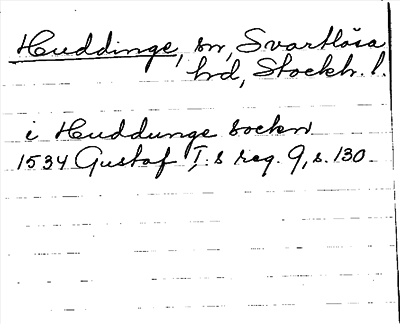 Huddinge, sn, Svartlösa
hd, Stockh. l.
i Huddunge sockn
1534 Gustaf I:s reg. 9, s. 130.